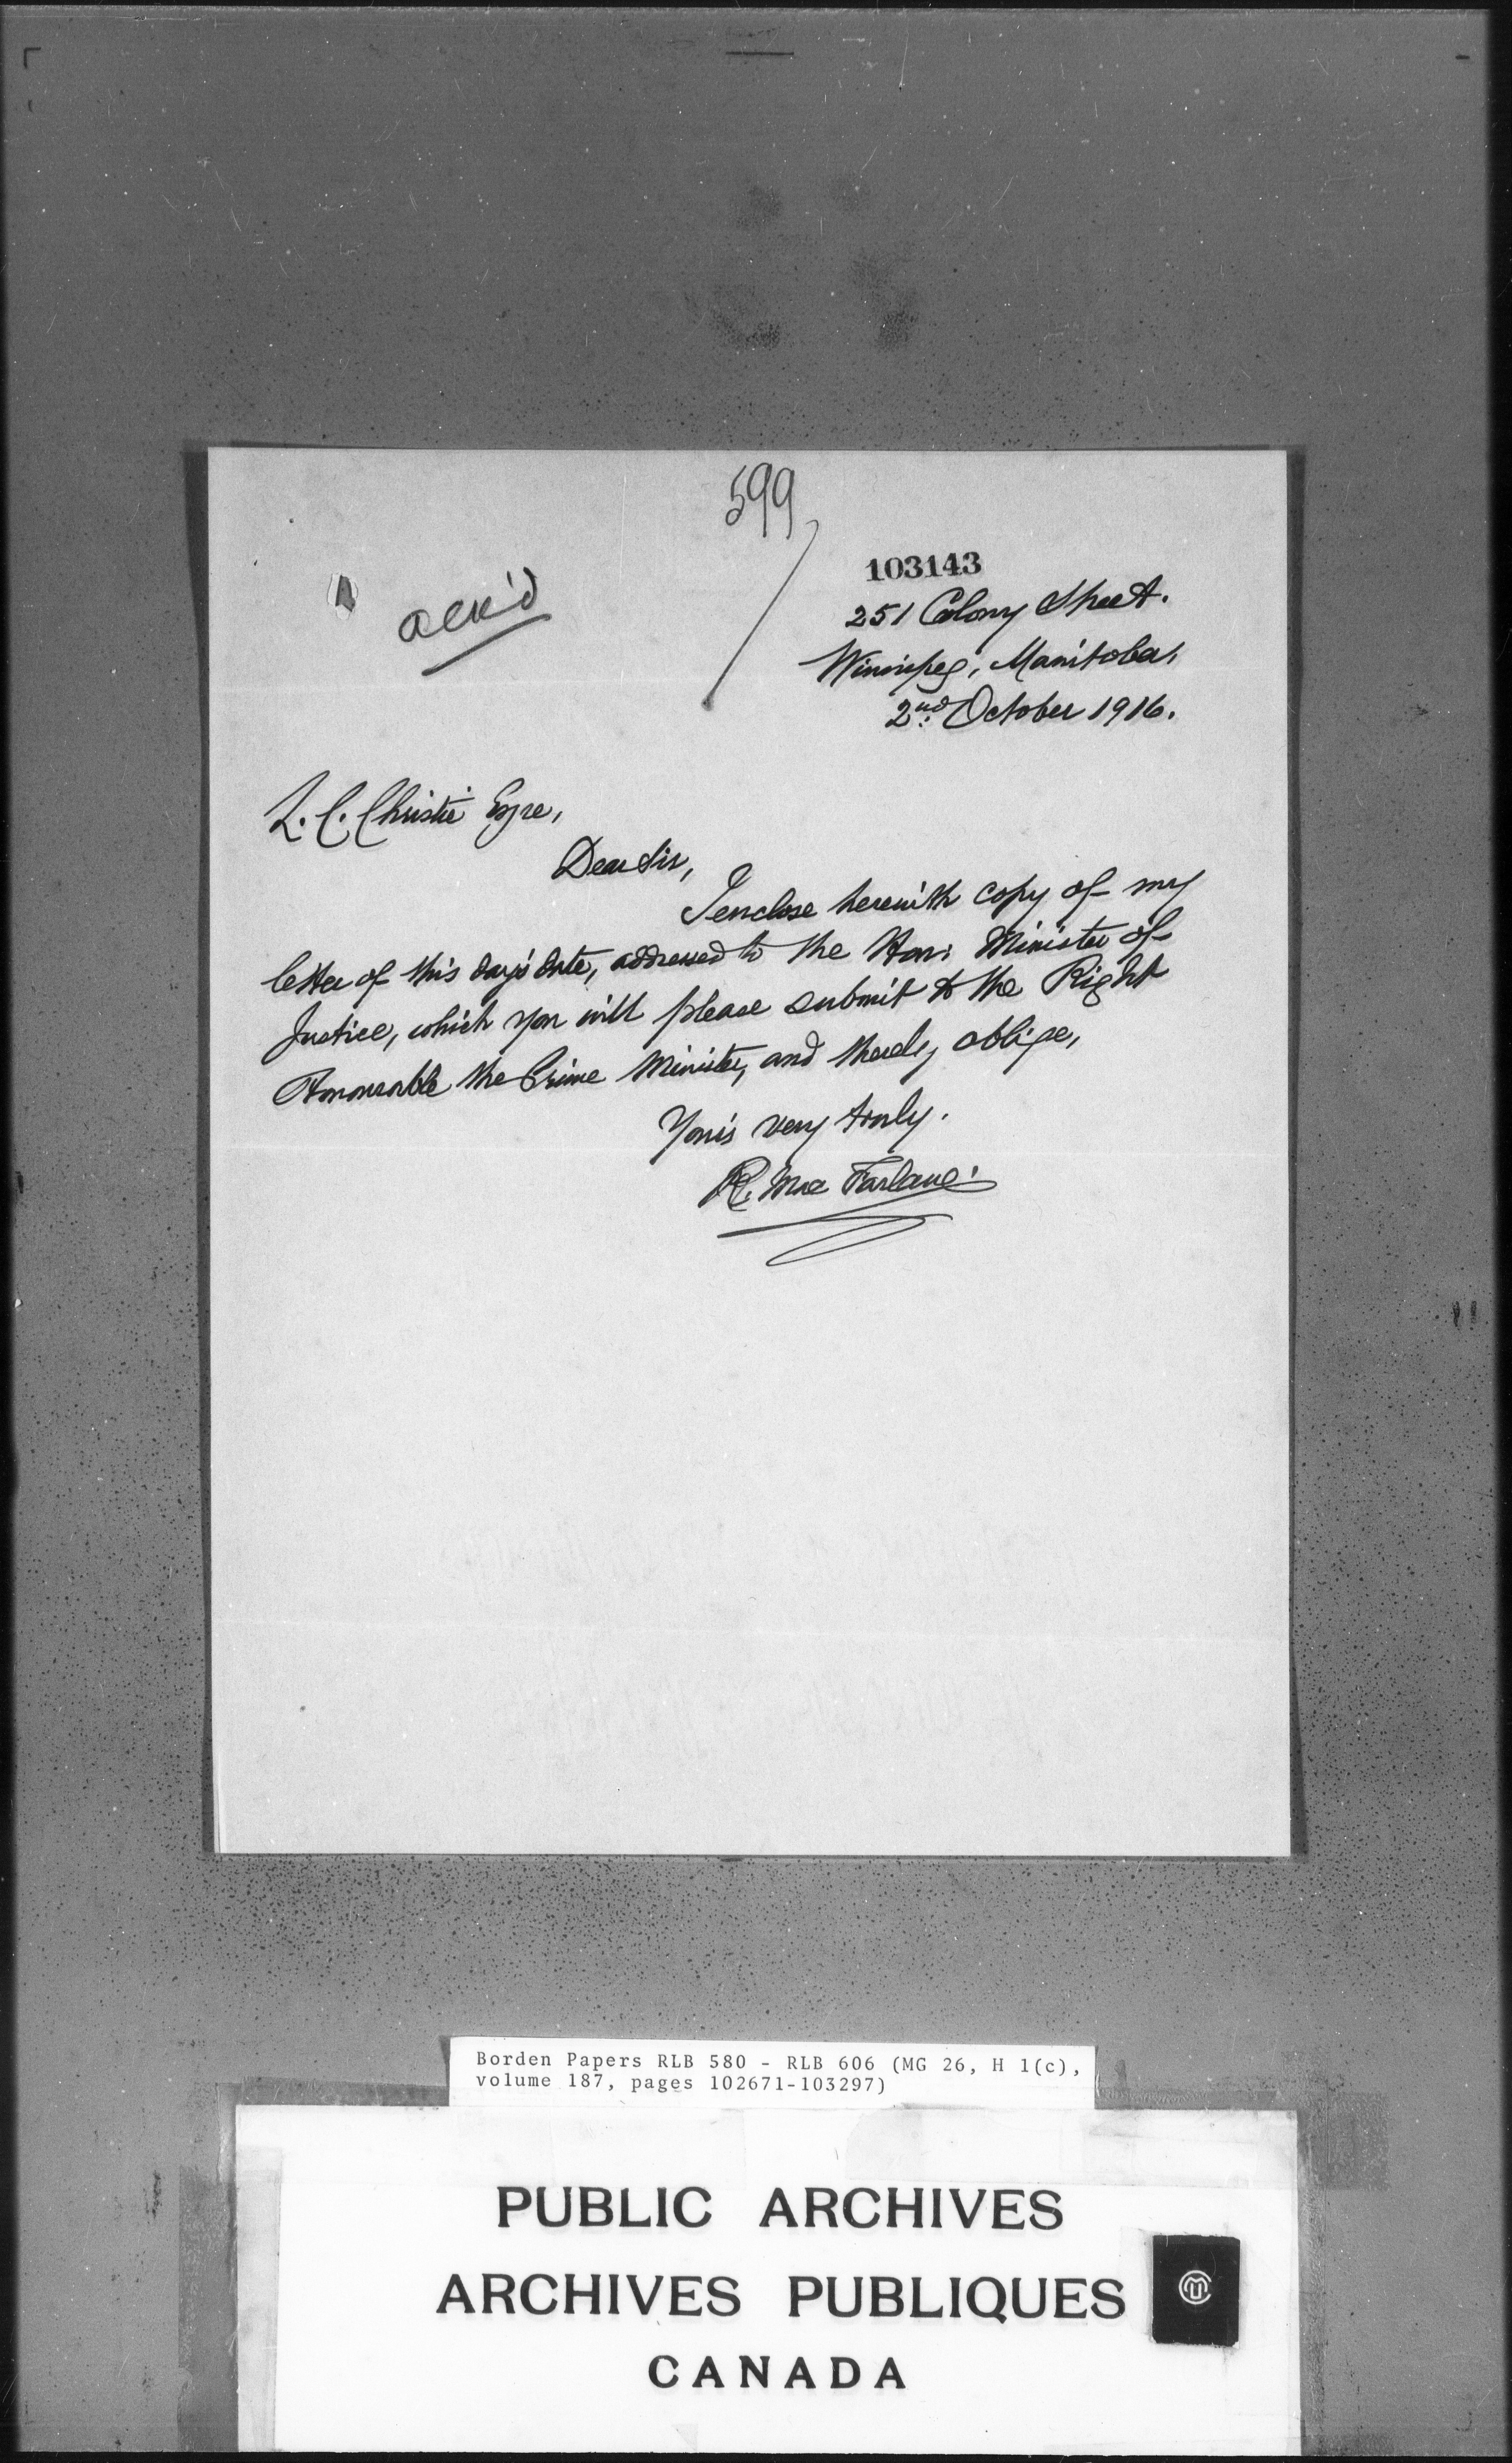 599
103143
ack'd
251 Colony Street.
Winnipeg, Manitoba,
2nd October 1916.
L. C. Christie Esqre,
Dear Sir,
I enclose herewith copy of my
letter of this day's date, addressed to the Hon: Minister of
Justice, which you will please submit to the Right
Honourable the Prime Minister, and thereby oblige,
Yours very truly.
R. Mac Farlane.
Borden Papers RLB 580 - RLB 606 (MG 26, H 1(c),
volume 187, pages 102671-103297)
PUBLIC ARCHIVES
ARCHIVES PUBLIQUES
CANADA